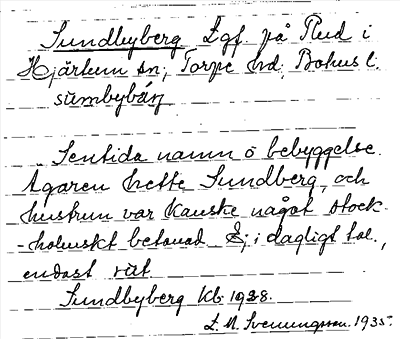 Sundbyberg Lgf. på Rud i
Hjärtum sn, Torpe hd, Bohus l.
sümbybárj
Sentida namn o bebyggelse.
Ägaren hette Sundberg, och
hustrun var kanske något stock-
-holmskt betonad. Ej i dagligt tal,
endast i
Sundbyberg Kb 1928.
L. M. Svenungsson. 1935.